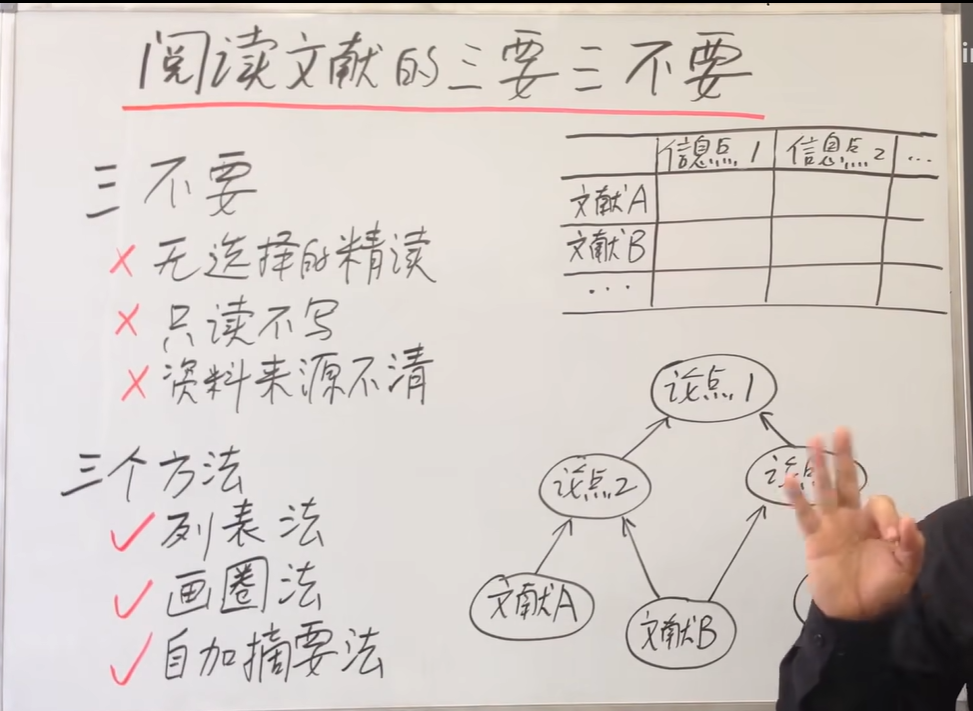 阅读文献的三要三不要
三不要
× 无选择的精读
× 只读不写
× 资料来源不清
三个方法
✓ 列表法
✓ 画圈法
✓ 自加摘要法
信息点1 信息点2 ...
文献A
文献B
...
论点1
论点2 论点
文献A 文献B